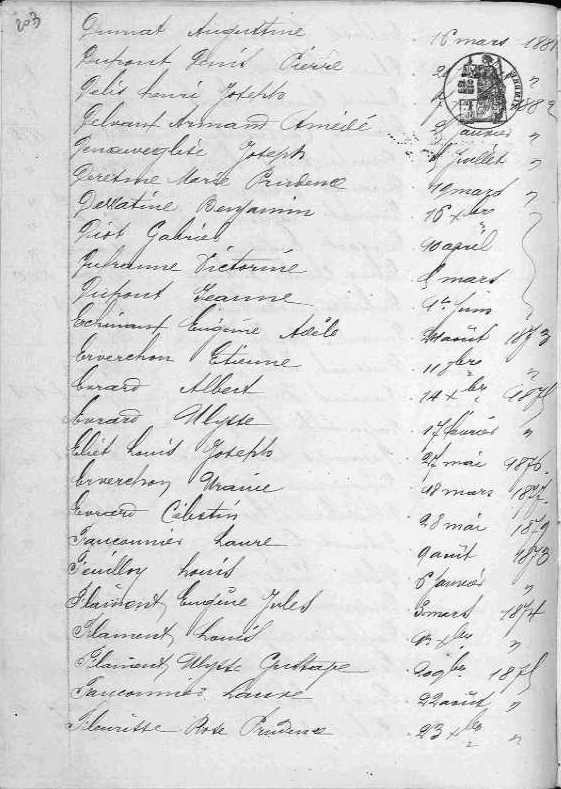 203
Dumat Augustine 16 mars 1881
Dupont Denis Pierre 20 "
Delis Henri Joseph 1882
Delvaux Armand Amédé Janvier "
Joseph Juillet "
Marie Prudence 10 mars "
Dellatine Benjamin 16 Xbre "
Diot Gabriel 10 avril
Dufranne Victorine mars
Dupont Jeanne 1er Juin
Eugénie Adèle août 1873
Erverchon Etienne 11 9bre "
Evrard Albert 14 Xbre 1875
Evrard Ulysse 17 février "
Eliet Louis Joseph 27 mai 1876
Erverchon Uranie 18 mars 1877
Evrard Célestin 28 mai 1879
Fauconnier Laure 9 août 1873
Feuilloy Louis 6 Janvier "
Flament Eugène Jules 3 mars 1874
Flament Louis Xbre "
Flament Ulysse Gustave 20 9bre 1875
Fauconnier Laure 22 août "
Fleurisse Rose Prudence 23 Xbre "